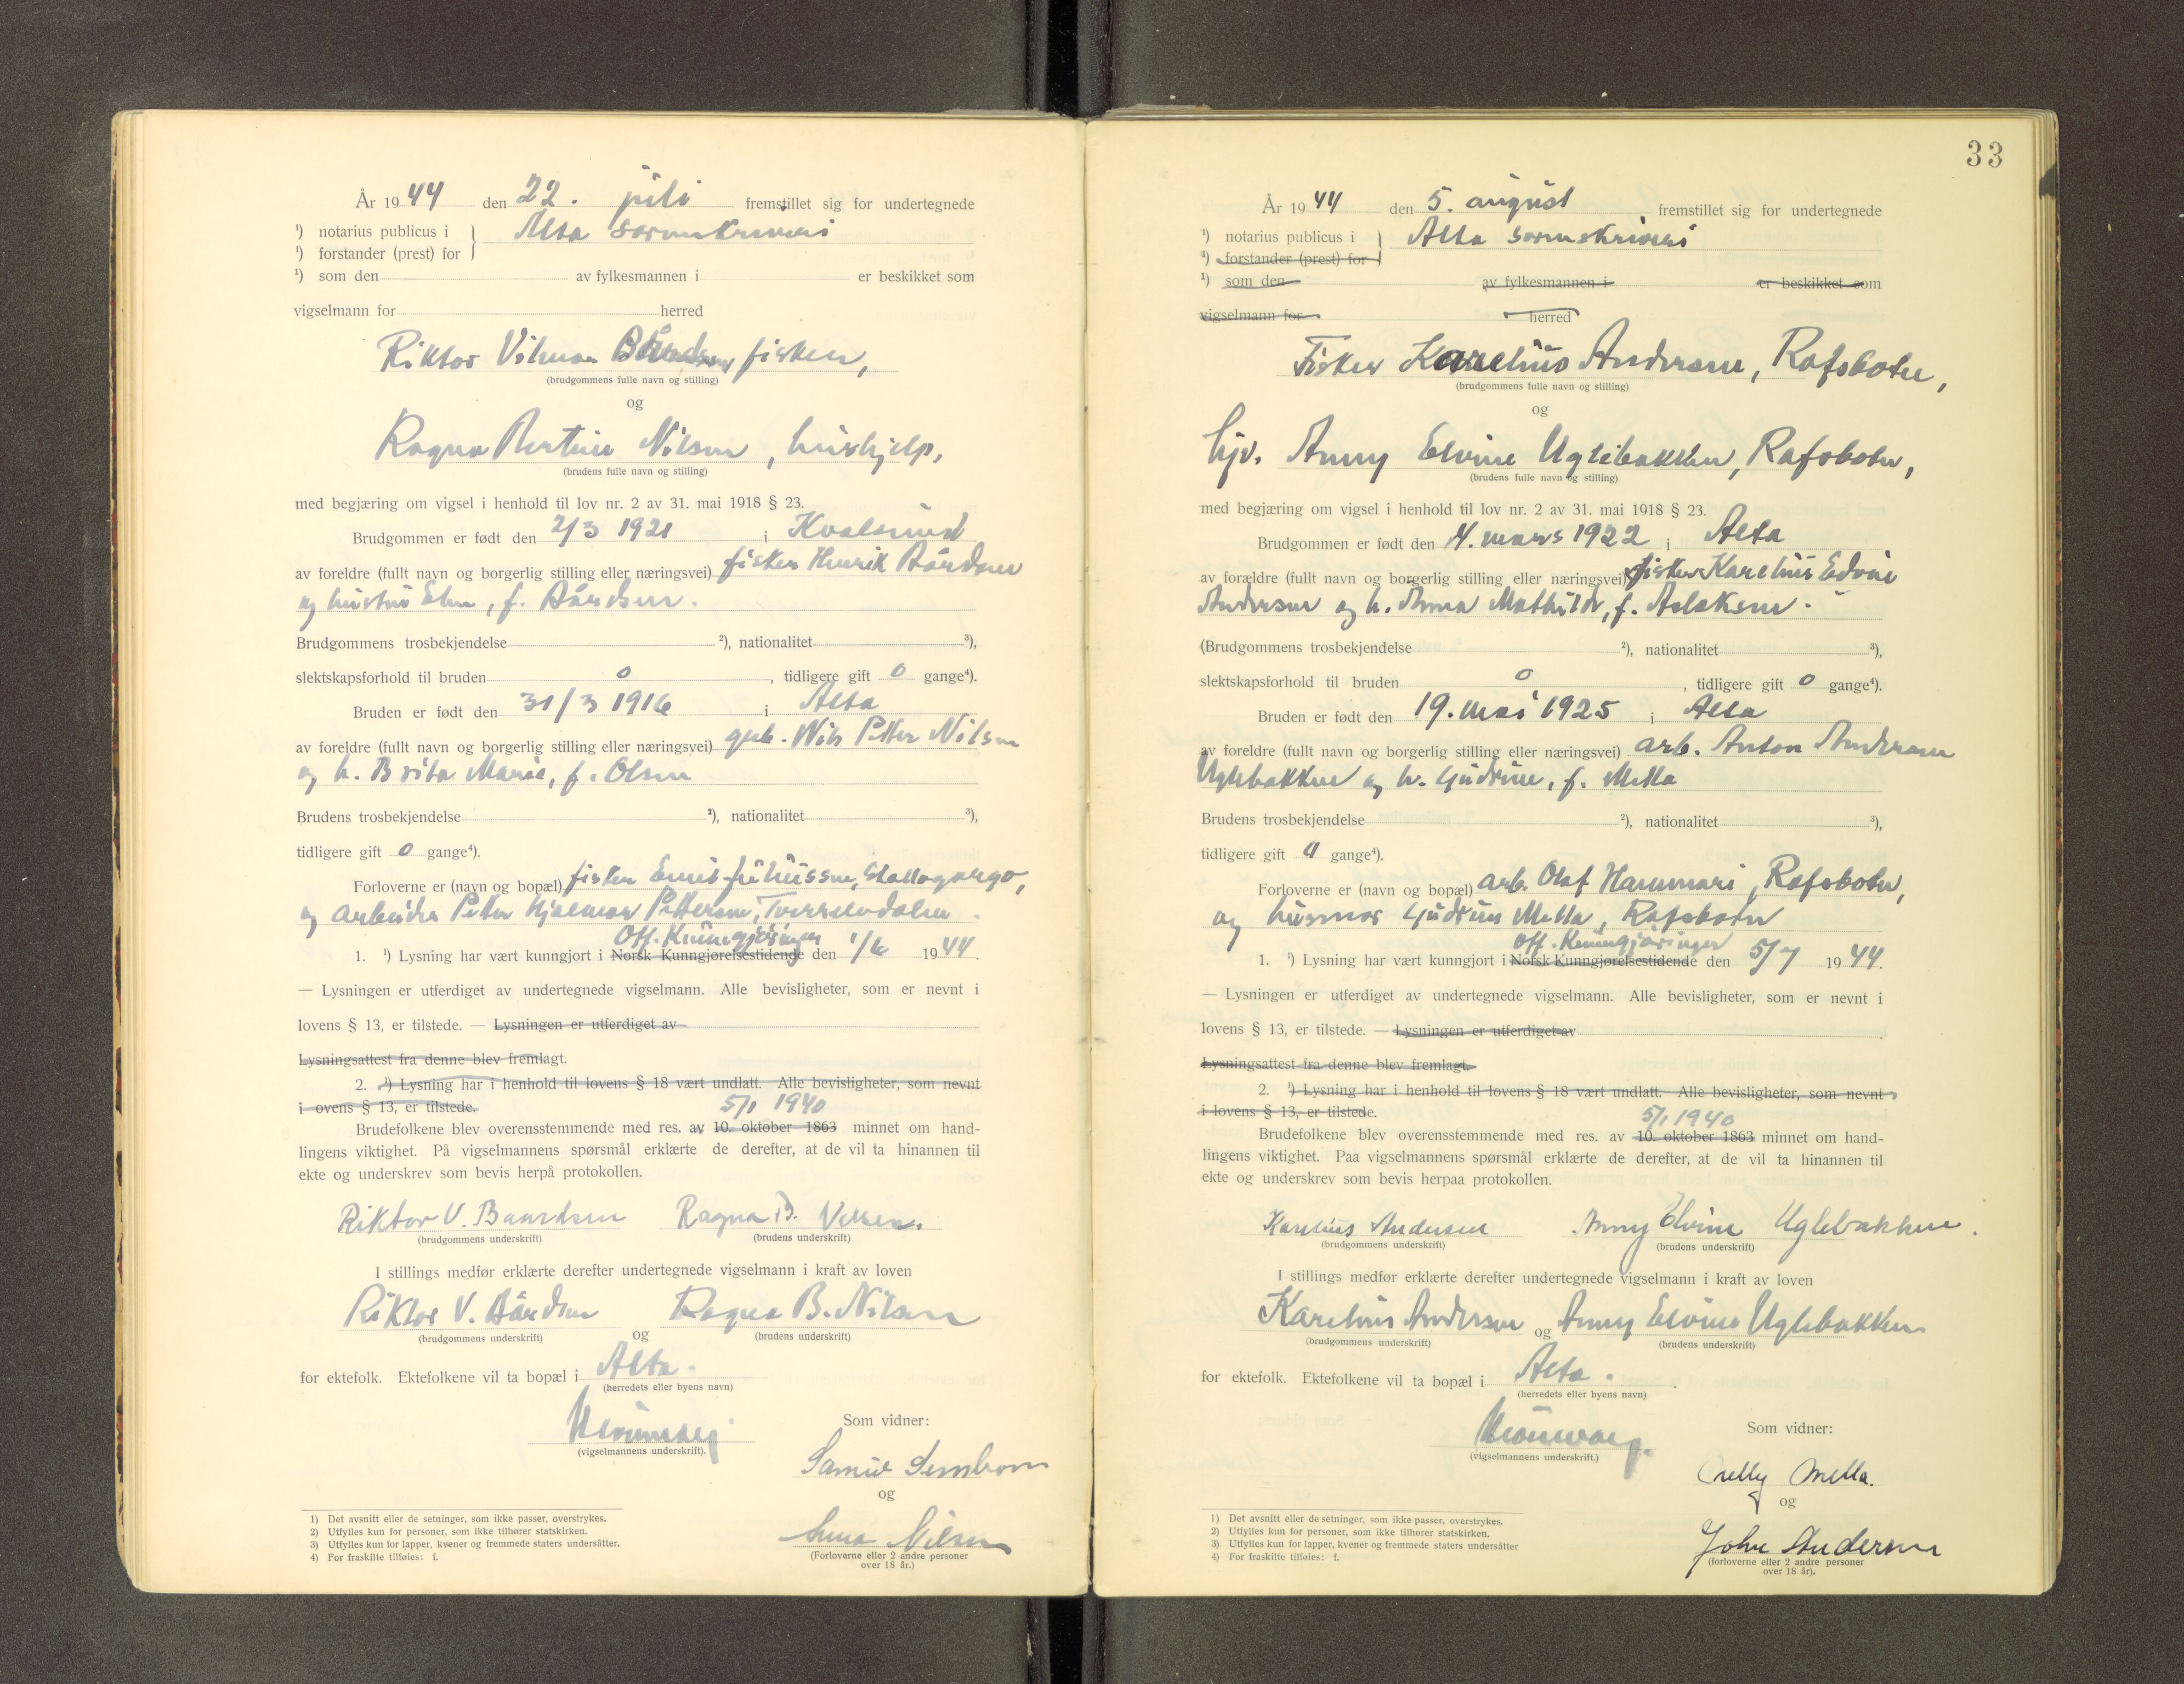 År 1944 den 22. juli fremstillet sig for undertegnede
¹) notarius publicus i } Alta sorenskriveri
¹) forstander (prest) for
¹) som den av fylkesmannen i er beskikket som
vigselmann for herred
Riktor Vilmar Bårdsen fisker,
(brudgommens fulle navn og stilling)
og
Ragna Bertine Nilsen, hushjelp.
(brudens fulle navn og stilling)
med begjæring om vigsel i henhold til lov nr. 2 av 31. mai 1918 § 23.
Brudgommen er født den 2/3 1921 i Kvalsund
av foreldre (fullt navn og borgerlig stilling eller næringsvei) fisker Henrik Bårdsen
og hustru f. Bårdsen.
Brudgommens trosbekjendelse ²), nationalitet ³),
slektskapsforhold til bruden 0, tidligere gift 0 gange⁴).
Bruden er født den 31/3 1916 i Alta
av foreldre (fullt navn og borgerlig stilling eller næringsvei) Nils Petter Nilsen
og h. Brita Marie, f. Olsen
Brudens trosbekjendelse ²), nationalitet ³),
tidligere gift 0 gange⁴).
Forloverne er (navn og bopæl) fisker Juliussen, Stallogargo,
og arbeider Peder Hjalmar Pettersen, Tverrelvdalen.
Off. Kunngjøringer
1. ¹) Lysning har vært kunngjort i Norsk Kunngjørelsestidende den 1/6 1944.
— Lysningen er utferdiget av undertegnede vigselmann. Alle bevisligheter, som er nevnt i
lovens § 13, er tilstede. — Lysningen er utferdiget av
Lysningsattest fra denne blev fremlagt.
2. ¹) Lysning har i henhold til lovens § 18 vært undlatt. Alle bevisligheter, som nevnt
i ovens § 13, er tilstede.
5/1 1940
Brudefolkene blev overensstemmende med res. av 10. oktober 1863 minnet om hand-
lingens viktighet. På vigselmannens spørsmål erklærte de derefter, at de vil ta hinannen til
ekte og underskrev som bevis herpå protokollen.
Riktor V. Baardsen Ragna B. Nilsen.
(brudgommens underskrift) (brudens underskrift)
I stillings medfør erklærte derefter undertegnede vigselmann i kraft av loven
Riktor V. Bårdsen og Ragna B. Nilsen
(brudgommens underskrift) (brudens underskrift)
for ektefolk. Ektefolkene vil ta bopæl i Alta.
(herredets eller byens navn)
(vigselmannens underskrift).
Som vidner:
og
Nilsen
(Forloverne eller 2 andre personer
over 18 år.)
1) Det avsnitt eller de setninger, som ikke passer, overstrykes.
2) Utfylles kun for personer, som ikke tilhører statskirken.
3) Utfylles kun for lapper, kvener og fremmede staters undersåtter.
4) For fraskilte tilføies: f.
33
År 1944 den 5. august fremstillet sig for undertegnede
¹) notarius publicus i } Alta sorenskriveri
¹) forstander (prest) for
¹) som den av fylkesmannen i er beskikket som
vigselmann for herred
Fisker Karelius Andersen, Rafsbotn,
(brudgommens fulle navn og stilling)
og
hjv. Anny Elvine Uglebakken, Rafsbotn,
(brudens fulle navn og stilling)
med begjæring om vigsel i henhold til lov nr. 2 av 31. mai 1918 § 23.
Brudgommen er født den 4. mars 1922 i Alta
av forældre (fullt navn og borgerlig stilling eller næringsvei) fisker Karelius Edvin
Andersen og h. Anna Mathilde, f. Aslaksen.
(Brudgommens trosbekjendelse ²), nationalitet ³),
slektskapsforhold til bruden 0, tidligere gift 0 gange⁴).
Bruden er født den 19. mai 1925 i Alta
av foreldre (fullt navn og borgerlig stilling eller næringsvei) arb. Anton Andersen
Uglebakken og h. Gudrun, f. Mella
Brudens trosbekjendelse ²), nationalitet ³),
tidligere gift 0 gange⁴).
Forloverne er (navn og bopæl) arb. Olaf Hammari, Rafsbotn,
og husmor Gudrun Mella, Rafsbotn
Off. Kunngjøringer
1. ¹) Lysning har vært kunngjort i Norsk Kunngjørelsestidende den 5/7 1944.
— Lysningen er utferdiget av undertegnede vigselmann. Alle bevisligheter, som er nevnt i
lovens § 13, er tilstede. — Lysningen er utferdiget av
Lysningsattest fra denne blev fremlagt.
2. ¹) Lysning har i henhold til lovens § 18 vært undlatt. Alle bevisligheter, som nevnt
i lovens § 13, er tilstede.
5/1 1940
Brudefolkene blev overensstemmende med res. av 10. oktober 1863 minnet om hand-
lingens viktighet. Paa vigselmannens spørsmål erklærte de derefter, at de vil ta hinannen til
ekte og underskrev som bevis herpaa protokollen.
Karelius Andersen Anny Elvine Uglebakken.
(brudgommens underskrift) (brudens underskrift)
I stillings medfør erklærte derefter undertegnede vigselmann i kraft av loven
Karelius Andersen og Anny Elvine Uglebakken
(brudgommens underskrift) (brudens underskrift)
for ektefolk. Ektefolkene vil ta bopæl i Alta.
(herredets eller byens navn)
(vigselmannens underskrift.)
Som vidner:
Mella.
og
John Andersen
(forloverne eller 2 andre personer
over 18 år).
1) Det avsnitt eller de setninger, som ikke passer, overstrykes.
2) Utfylles kun for personer, som ikke tilhører statskirken.
3) Utfylles kun for lapper, kvener og fremmede staters undersåtter
4) For fraskilte tilføies: f.